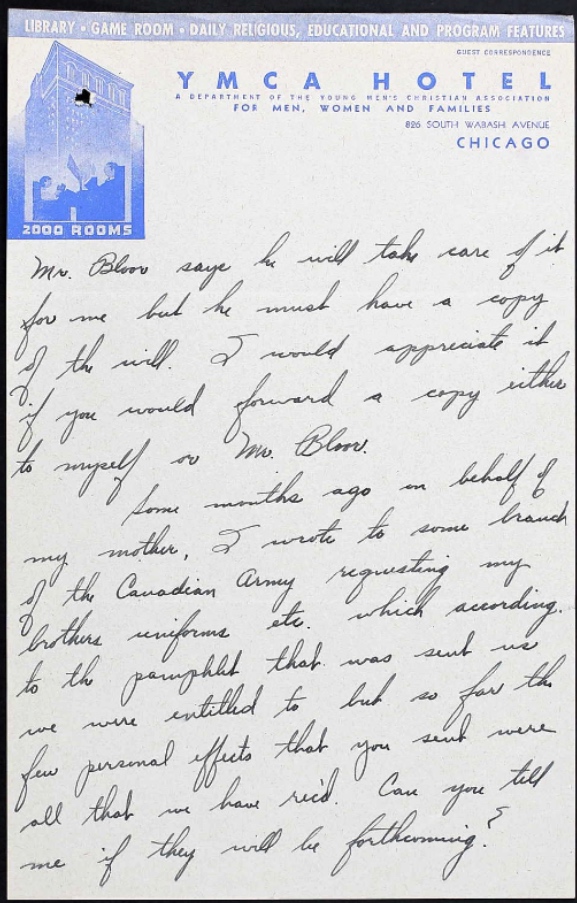 LIBRARY • GAME ROOM • DAILY RELIGIOUS, EDUCATIONAL AND PROGRAM FEATURES
GUEST CORRESPONDENCE
YMCA HOTEL
A DEPARTMENT OF THE YOUNG MEN'S CHRISTIAN ASSOCIATION
FOR MEN, WOMEN AND FAMILIES
826 SOUTH WABASH AVENUE
CHICAGO
2000 ROOMS
Mr. Bloor says he will take care of it
for me but he must have a copy
of the will. I would appreciate it
if you would forward a copy either
to myself or Mr. Bloor.
Some months ago on behalf of
my mother, I wrote to some branch
of the Canadian Army requesting my
brothers uniforms etc. which according
to the pamphlet that was sent us
we were entitled to but so far the
few personal effects that you sent were
all that we have rec'd. Can you tell
me if they will be forthcoming?